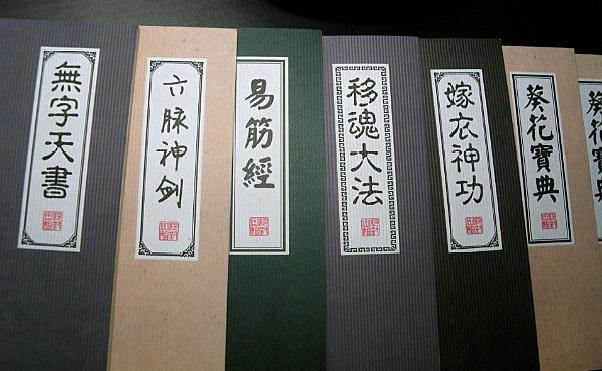 無字天書
六脉神劍
易筋經
移魂大法
嫁衣神功
葵花寶典
葵花寶典